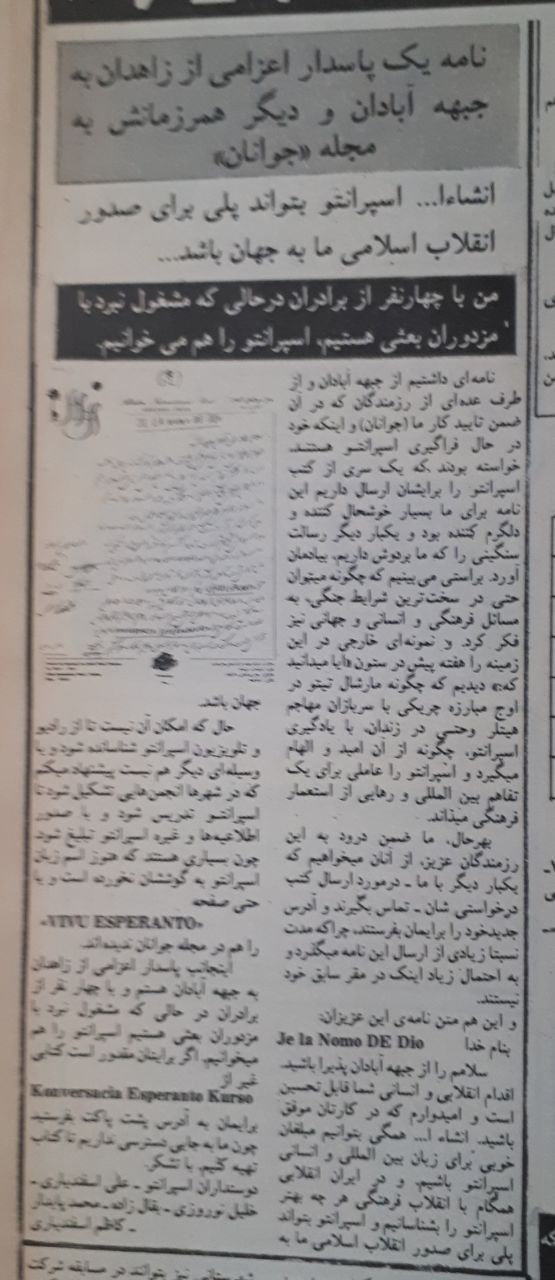 نامه یک پاسدار اعزامی از زاهدان به
جبهه آبادان و دیگر همرزمانش به
مجله «جوانان»
انشاءا... اسپرانتو بتواند پلی برای صدور
انقلاب اسلامی ما به جهان باشد...
من با چهارنفر از برادران درحالی که مشغول نبرد با
مزدوران بعثی هستیم، اسپرانتو را هم می خوانیم.
نامه‌ای داشتیم از جبهه آبادان و از
طرف عده‌ای از رزمندگان که در آن
ضمن تایید کار ما (جوانان) و اینکه خود
در حال فراگیری اسپرانتو هستند،
خواسته بودند که یک سری از کتب
اسپرانتو را برایشان ارسال داریم این
نامه برای ما بسیار خوشحال کننده و
دلگرم کننده بود و یکبار دیگر رسالت
سنگینی را که ما بردوش داریم، بیادمان
آورد. براستی می‌بینیم که چگونه میتوان
حتی در سخت‌ترین شرایط جنگی، به
مسائل فرهنگی و انسانی و جهانی نیز
فکر کرد. و نمونه‌ای خارجی در این
زمینه را هفته پیش در ستون «آیا میدانید
که» دیدیم که چگونه مارشال تیتو در
اوج مبارزه چریکی با سربازان مهاجم
هیتلر وحتی در زندان، با یادگیری
اسپرانتو، چگونه از آن امید و الهام
میگیرد و اسپرانتو را عاملی برای یک
تفاهم بین المللی و رهایی از استعمار
فرهنگی میداند.
بهرحال، ما ضمن درود به این
رزمندگان عزیز، از آنان میخواهیم که
یکبار دیگر با ما ـ درمورد ارسال کتب
درخواستی شان ـ تماس بگیرند و آدرس
جدیدخود را برایمان بفرستند، چراکه مدت
نسبتا زیادی از ارسال این نامه میگذرد و
به احتمال زیاد اینک در مقر سابق خود
نیستند.
و این هم متن نامه‌ی این عزیزان:
بنام خدا Je la Nomo DE Dio
سلامم را از جبهه آبادان پذیرا باشید.
اقدام انقلابی و انسانی شما قابل تحسین
است و امیدوارم که در کارتان موفق
باشید. انشاء ا... همگی بتوانیم مبلغان
خوبی برای زبان بین المللی و انسانی
اسپرانتو باشیم، و در ایران انقلابی
همگام با انقلاب فرهنگی هر چه بهتر
اسپرانتو را بشناسانیم و اسپرانتو بتواند
پلی برای صدور انقلاب اسلامی ما به
جهان باشد.
حال که امکان آن نیست تا از رادیو
و تلویزیون اسپرانتو شناسانده شود و یا
وسیله‌ای دیگر هم نیست پیشنهاد میکنم
که در شهرها انجمن‌هایی تشکیل شود تا
اسپرانتو تدریس شود و با صدور
اطلاعیه‌ها و غیره اسپرانتو تبلیغ شود.
چون بسیاری هستند که هنوز اسم زبان
اسپرانتو به گوششان نخورده است و یا
حتی صفحه
«VIVU ESPERANTO»
را هم در مجله جوانان ندیده‌اند.
اینجانب پاسدار اعزامی از زاهدان
به جبهه آبادان هستم و با چهار نفر از
برادران در حالی که مشغول نبرد با
مزدوران بعثی هستیم اسپرانتو را هم
میخوانیم. اگر برایتان مقدور است کتابی
غیر از
Konversacia Esperanto Kurso
برایمان به آدرس پشت پاکت بفرستید
چون ما به جایی دسترسی نداریم تا کتاب
تهیه کنیم. با تشکر.
دوستداران اسپرانتو ـ علی اسفندیاری ـ
خلیل نوروزی ـ بقال زاده ـ محمد پایدار
ـ کاظم اسفندیاری